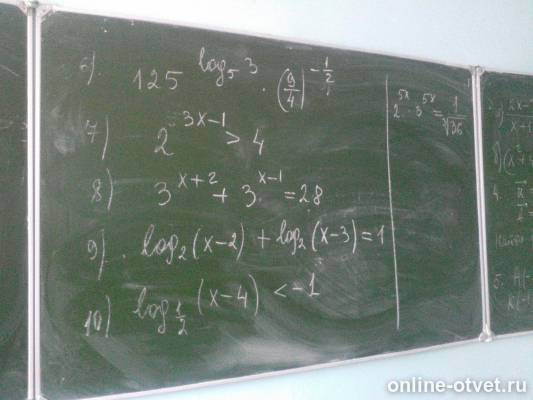 6). 125^{log_5 3} · (9/4)^{-1/2}
7) 2^{3x-1} > 4
8) 3^{x+2} + 3^{x-1} = 28
9) log_2(x-2) + log_2(x-3) = 1
10) log_{1/2}(x-4) < -1
2^{5x} · 3^{5x} = 1/
4.
5.
online-otvet.ru